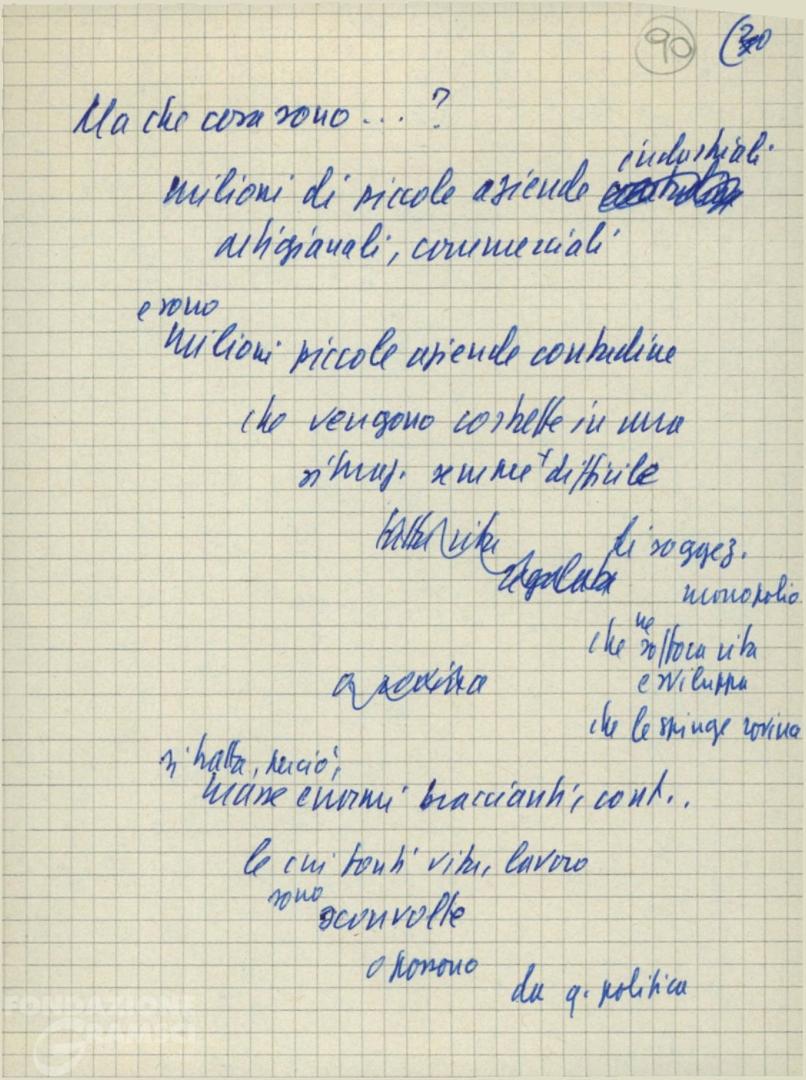 90 (30
Ma che cosa sono ... ?
industriali
milioni di piccole aziende
artigianali, commerciali
e sono
milioni piccole aziende contadine
che vengono costrette in una
situaz. sempre + difficile
tutta vita
regolata
di soggez.
monopolio
che ne soffoca vita
e sviluppa
che le spinge rovina
a rovina
si tratta, perciò,
masse enormi braccianti, cont..
le cui fonti vita, lavoro
sono
sconvolte
o possono
da q. politica
FONDAZIONE
GRAMSCI